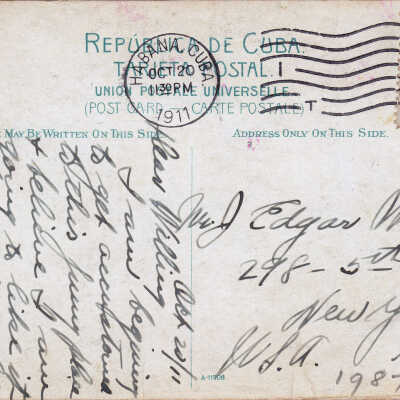 REPÚBLICA DE CUBA.
TARJETA POSTAL.
UNION POSTALE UNIVERSELLE.
(POST CARD — CARTE POSTALE)
HABANA, CUBA
OCT 20
11:30PM
1911
1
T
E MAY BE WRITTEN ON THIS SIDE.
ADDRESS ONLY ON THIS SIDE.
Oct 20/11
Dear Willing
I am begining
to get accustomed
to this funny place
& believe I am
going to like it
Mr J Edgar
298 - 5th
New Y
U.S.A.
198